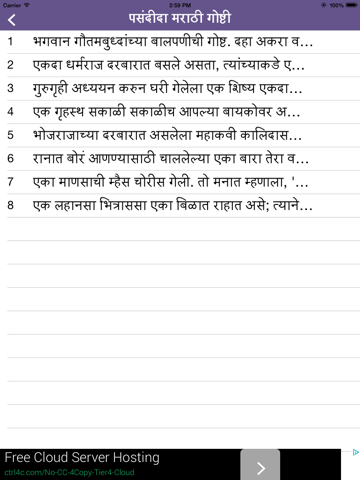 Carrier 2:59 PM 100%
पसंदीदा मराठी गोष्टी
1 भगवान गौतमबुध्दांच्या बालपणीची गोष्ट. दहा अकरा व...
2 एकदा धर्मराज दरबारात बसले असता, त्यांच्याकडे ए...
3 गुरुगृही अध्ययन करुन घरी गेलेला एक शिष्य एकदा...
4 एक गृहस्थ सकाळी सकाळीच आपल्या बायकोवर अ...
5 भोजराजाच्या दरबारात असलेला महाकवी कालिदास...
6 रानात बोरं आणण्यासाठी चाललेल्या एका बारा तेरा व...
7 एका माणसाची म्हैस चोरीस गेली. तो मनात म्हणाला, '...
8 एक लहानसा भित्राससा एका बिळात राहात असे; त्याने...
Free Cloud Server Hosting
ctrl4c.com/No-CC-4Copy-Tier4-Cloud